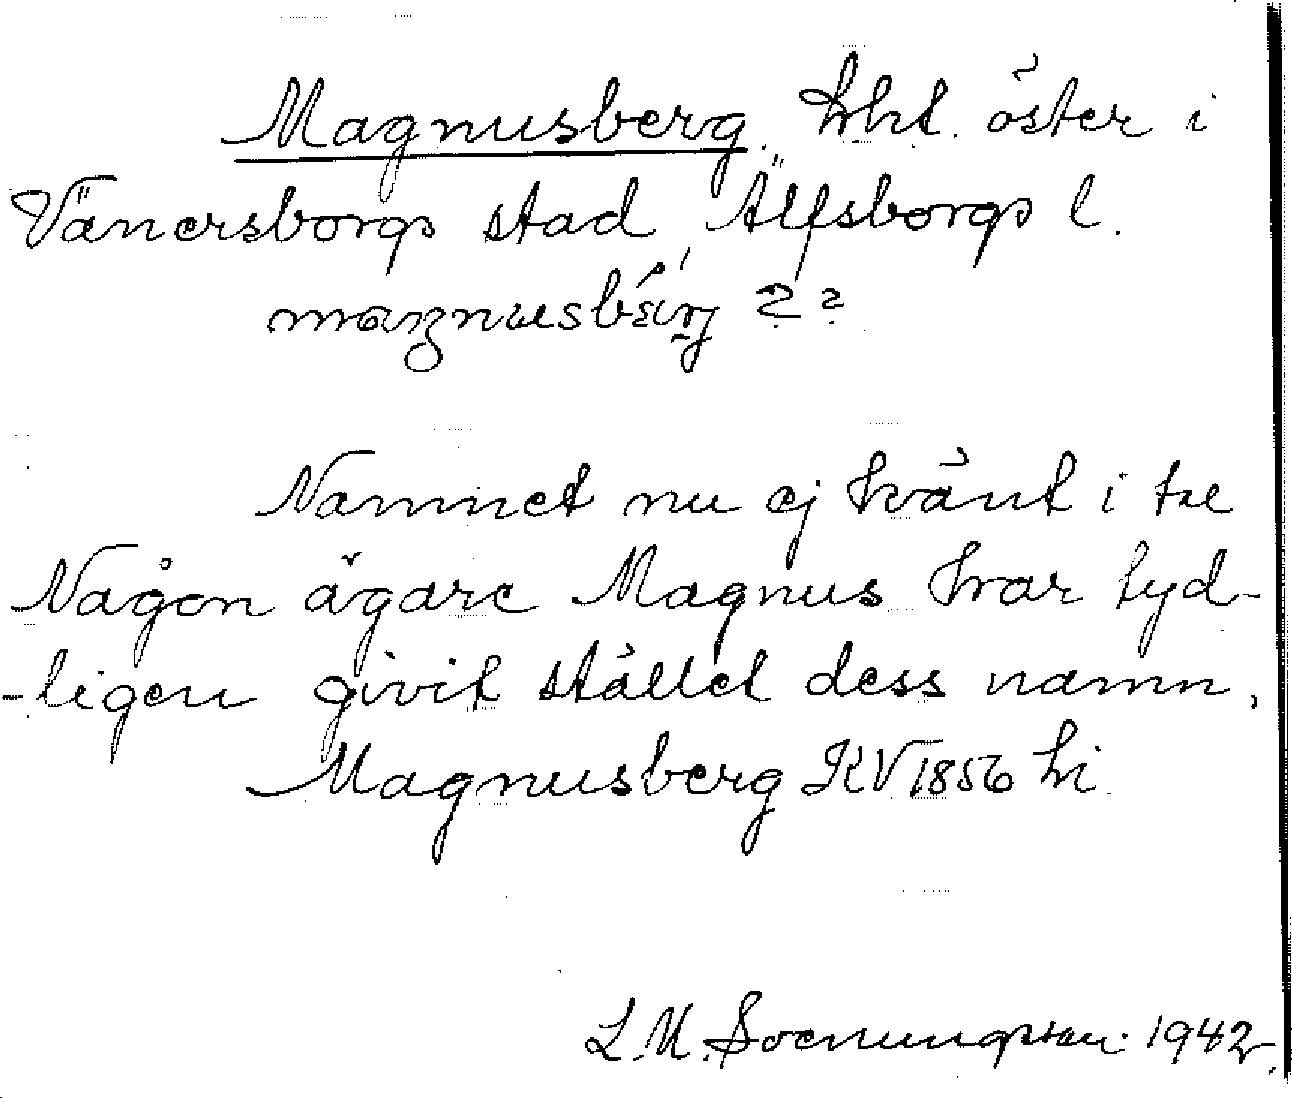 Magnusberg, lht. öster i
Vänersborgs stad, Älfsborgs l.
magnusbærj ??
Namnet nu ej känt i tre
Någon ägare Magnus har tyd-
-ligen givit stället dess namn.
Magnusberg KV 1856 hi
L. M. Svenungsson. 1942.